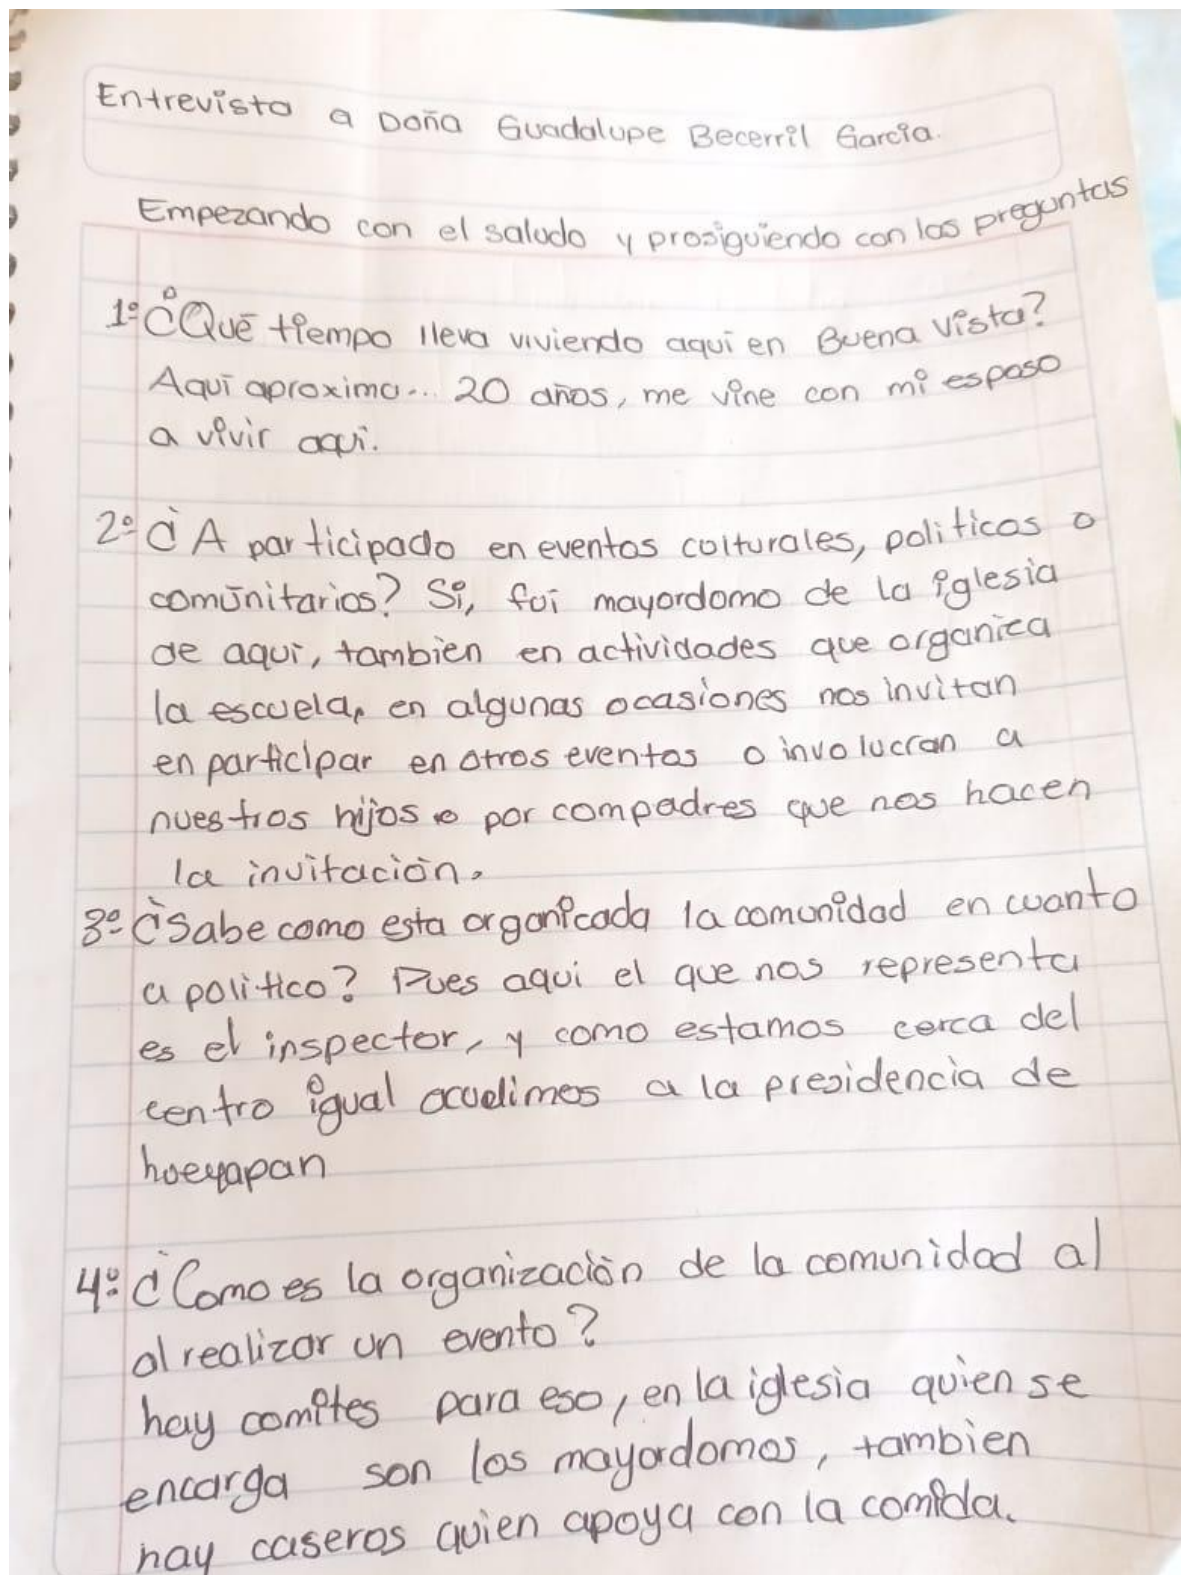 Entrevista a Doña Guadalupe Becerril Garcia.
Empezando con el saludo y prosiguiendo con las preguntas
1º ¿Qué tiempo lleva viviendo aquí en Buena Vista?
Aquí aproxima... 20 años, me vine con mi esposo
a vivir aquí.
2º ¿A participado en eventos colturales, politicos o
comúnitarios? Si, fui mayordomo de la iglesia
de aqui, tambien en actividades que organiza
la escuela, en algunas ocasiones nos invitan
en participar en otros eventos o involucran a
nuestros hijos o por compadres que nos hacen
la invitación.
3º ¿Sabe como esta organicada la comunidad en cuanto
a politico? Pues aqui el que nos representa
es el inspector, y como estamos cerca del
centro igual acudimos a la presidencia de
hueyapan
4º ¿Como es la organización de la comunidad al
al realizar un evento?
hay comites para eso, en la iglesia quien se
encarga son los mayordomos, tambien
hay caseros quien apoya con la comida.